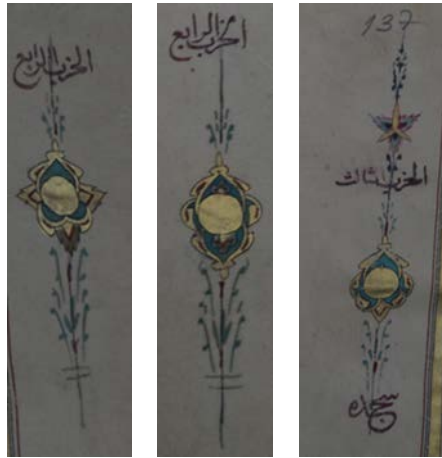 الحزب الرابع
الحزب الرابع
137
الحزب الثالث
سجده